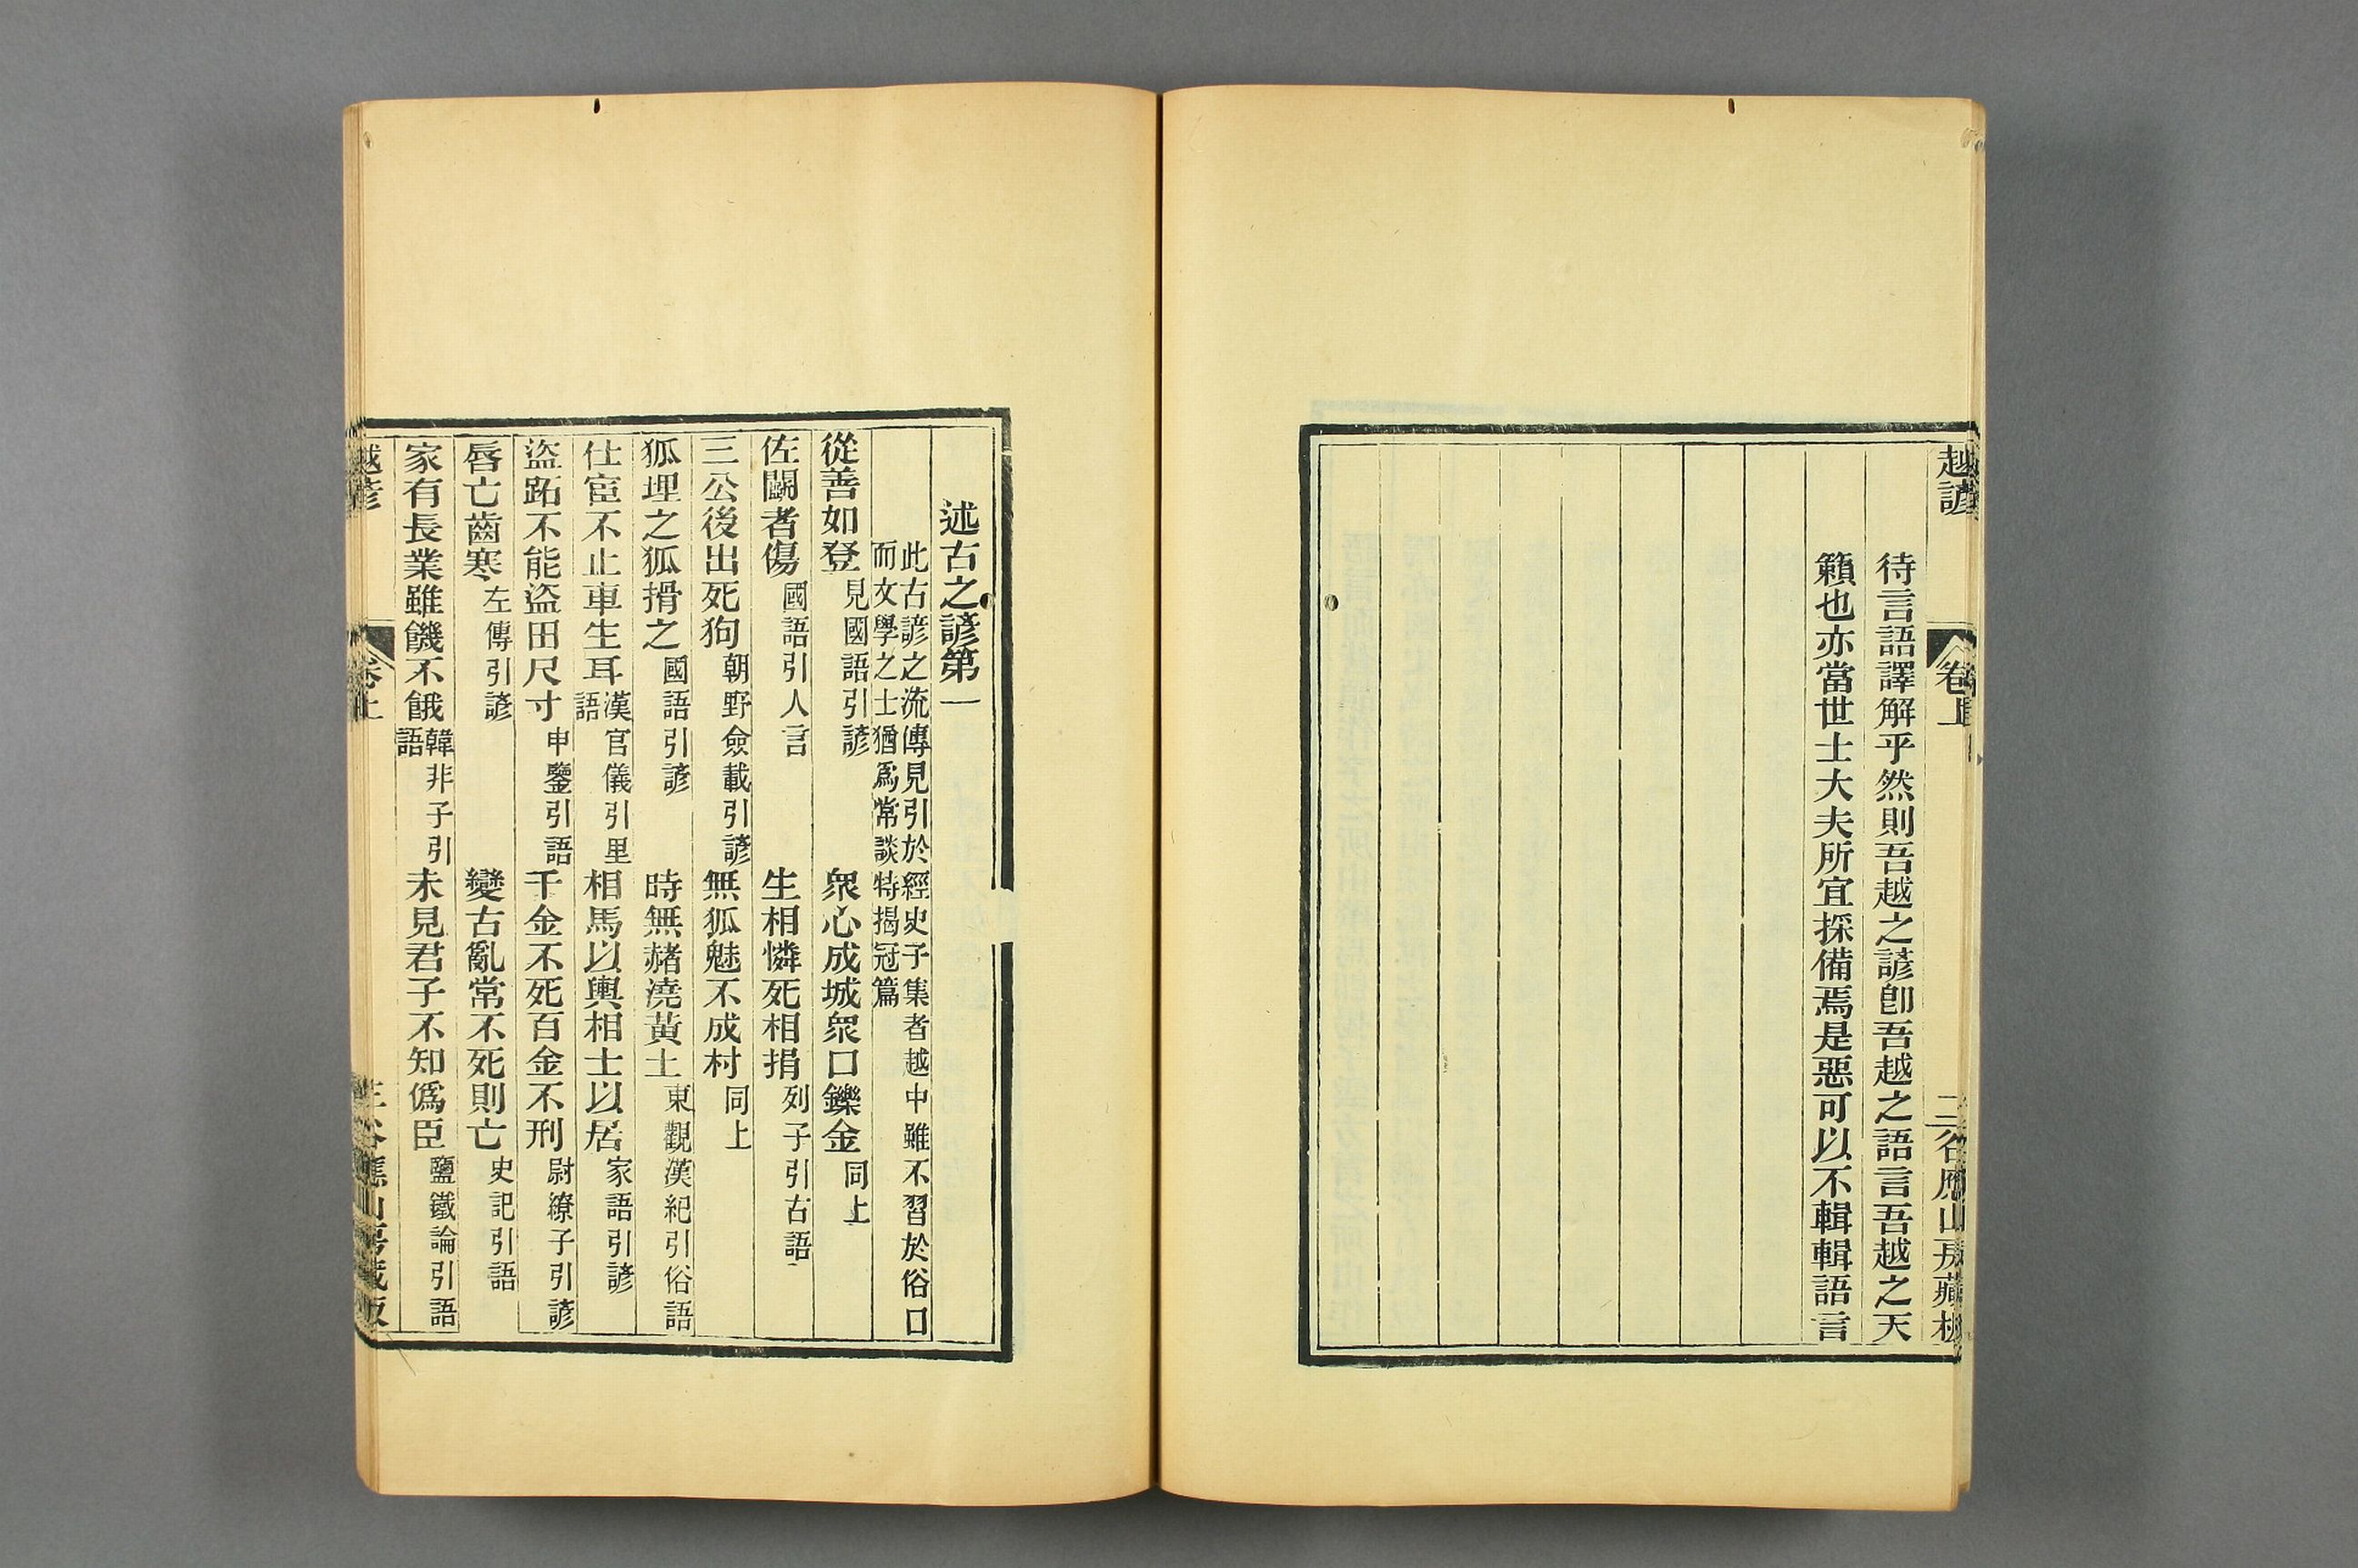 越諺
卷上
待言語譯解乎然則吾越之諺卽吾越之語言吾越之天
籟也亦當世士大夫所宜採備焉是惡可以不輯輯語言
述古之諺第一
此古諺之流傳見引於經史子集者越中雖不習於俗口
而文學之士猶爲常談特揭冠篇
從善如登 見國語引諺 衆心成城衆口鑠金 同上
佐鬭者傷 國語引人言 生相憐死相捐 列子引古語
三公後出死狗 朝野僉載引諺 無狐魅不成村 同上
狐埋之狐搰之 國語引諺 時無赭澆黃土 東觀漢紀引俗語
仕宦不止車生耳 漢官儀引里語 相馬以輿相士以居 家語引諺
盜跖不能盜田尺寸 申鑒引語 千金不死百金不刑 尉繚子引諺
脣亡齒寒 左傳引諺 變古亂常不死則亡 史記引語
家有長業雖饑不餓 韓非子引語 未見君子不知僞臣 鹽鐵論引語
越諺
卷上